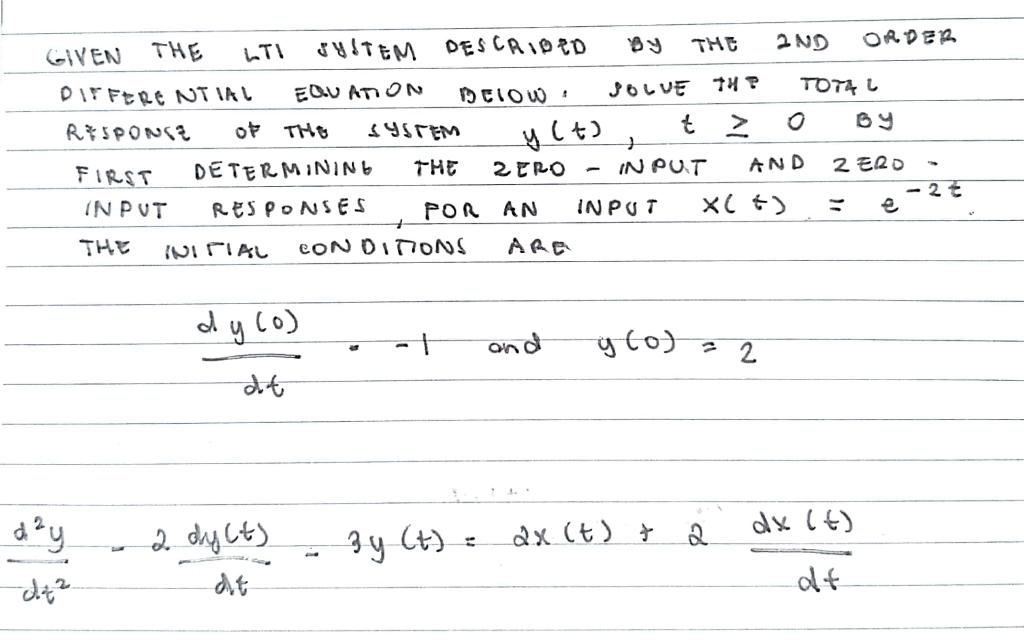 GIVEN THE LTI SYSTEM DESCRIBED BY THE 2ND ORDER
DIFFERENTIAL EQUATION BELOW. SOLVE THE TOTAL
RESPONSE OF THE SYSTEM y(t), t ≥ 0 BY
FIRST DETERMINING THE ZERO - INPUT AND ZERO -
INPUT RESPONSES, FOR AN INPUT X(t) = e^-2t.
THE INITIAL CONDITIONS ARE
dy(0)/dt = -1 and y(0) = 2
d²y/dt² - 2 dy(t)/dt - 3y(t) = 2x(t) + 2 dx(t)/dt